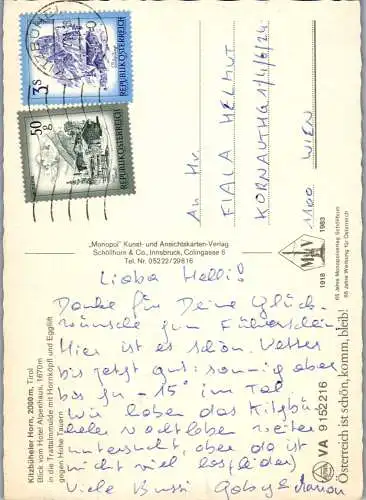 KITZBÜHEL
3S
REPUBLIK ÖSTERREICH
50g
REPUBLIK ÖSTERREICH
An Hr.
FIALA HELMUT
KORNAUTHG 1/4/6/24
1100 WIEN
„Monopol" Kunst- und Ansichtskarten-Verlag
Schöllhorn & Co., Innsbruck, Colingasse 6
Tel. Nr. 05222/29816
1918 1983
65 Jahre Monopolverlag Schöllhorn
65 Jahre Werbung für Österreich
Lieber Helli!
Danke für Deine Glück-
wünsche zum Führerschein
Hier ist es schön. Wetter
bis jetzt gut: sonnig aber
bis zu -15° im Tal
Wir haben das Kitzbü-
heler Nachtleben weiter
untersucht, aber da ist
nicht viel los (leider)
Viele Bussi Gaby + Marion
Kitzbüheler Horn, 2000m, Tirol
Blick vom Hotel Alpenhaus, 1670m
in die Trattalmmulde mit Hornköpfl und Egglift
gegen Hohe Tauern
VA 9152216
Österreich ist schön, komm, bleib!